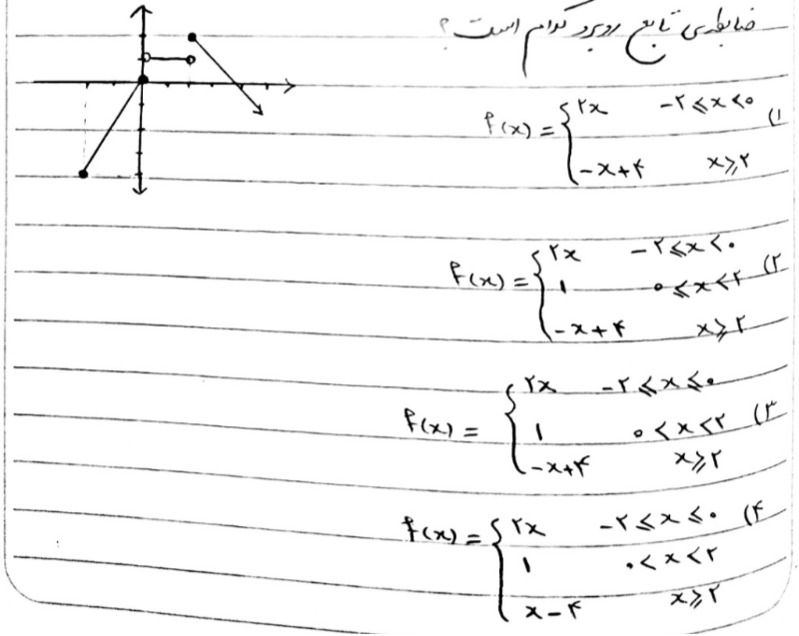 ضابطه‌ی تابع روبرو کدام است؟
۱) f(x) = { ۲x   -۲ ≤ x < ۰
-x+۴   x ≥ ۲
۲) f(x) = { ۲x   -۲ ≤ x < ۰
۱   ۰ ≤ x < ۲
-x+۴   x ≥ ۲
۳) f(x) = { ۲x   -۲ ≤ x ≤ ۰
۱   ۰ < x < ۲
-x+۴   x ≥ ۲
۴) f(x) = { ۲x   -۲ ≤ x ≤ ۰
۱   ۰ < x < ۲
x-۴   x ≥ ۲